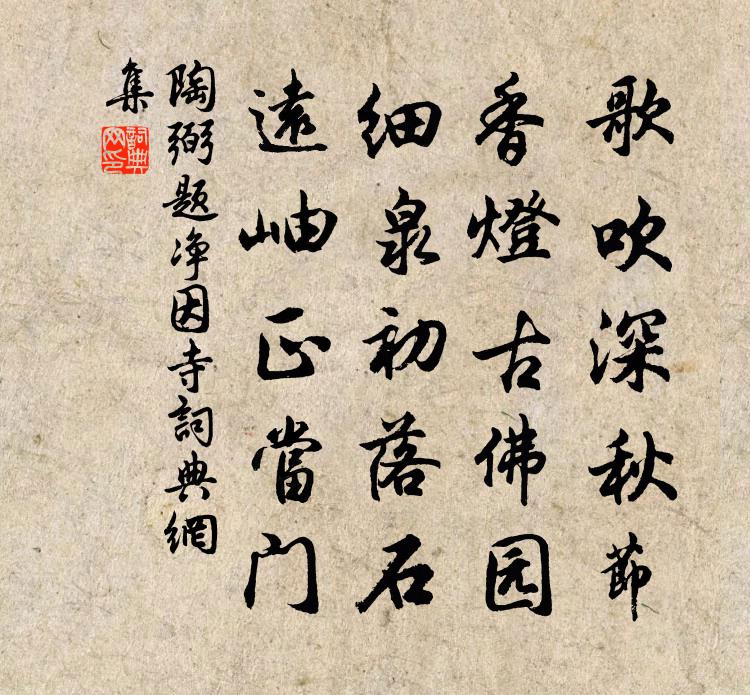 歌吹深秋節
香燈古佛园
細泉初落石
遠岫正當门
陶弼题净因寺詞典網
集
詞典
网印